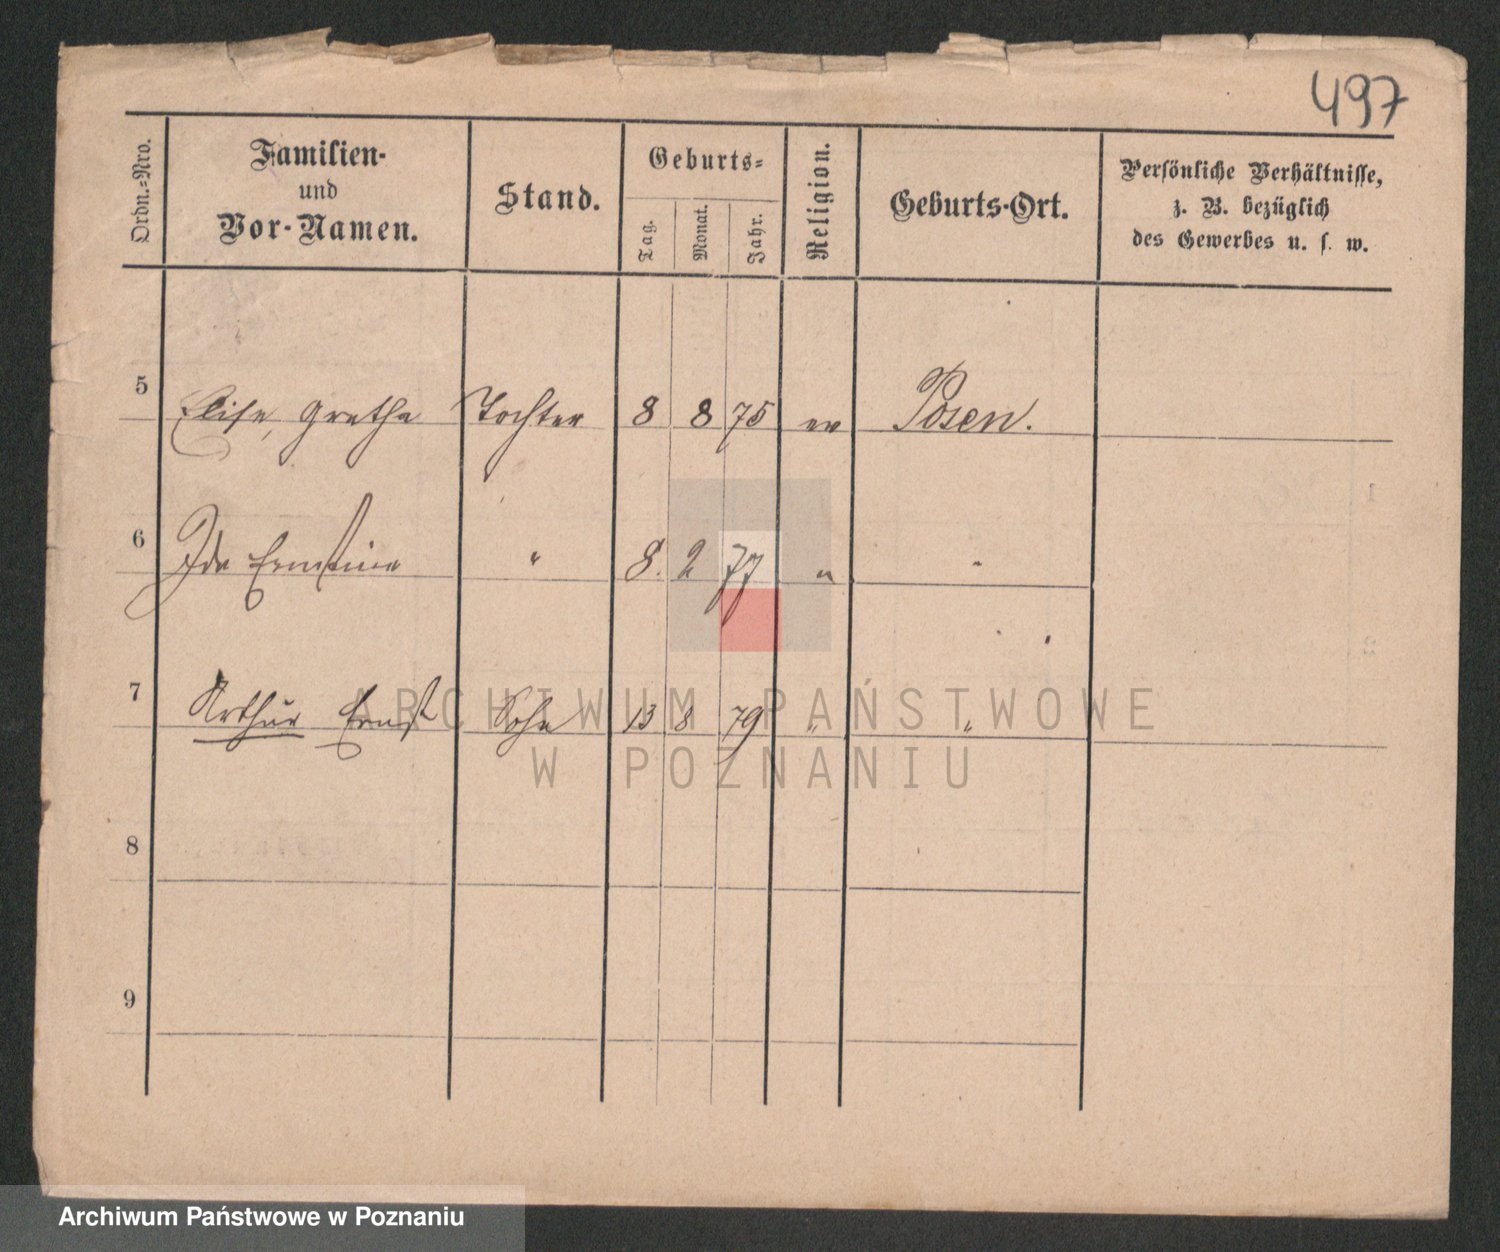 497
Ordn.=Nro.
Familien-
und
Vor-Namen.
Stand.
Geburts=
Tag.
Monat.
Jahr.
Religion.
Geburts-Ort.
Persönliche Verhältnisse,
z. B. bezüglich
des Gewerbes u. s. w.
5 Elise, Grethe Tochter 8 8 75 ev Posen.
6 Ida Ernstine " 8. 2 77 " "
7 Arthur Ernst Sohn 13 8 79 " "
ARCHIWUM PAŃSTWOWE
W POZNANIU
8
9
Archiwum Państwowe w Poznaniu